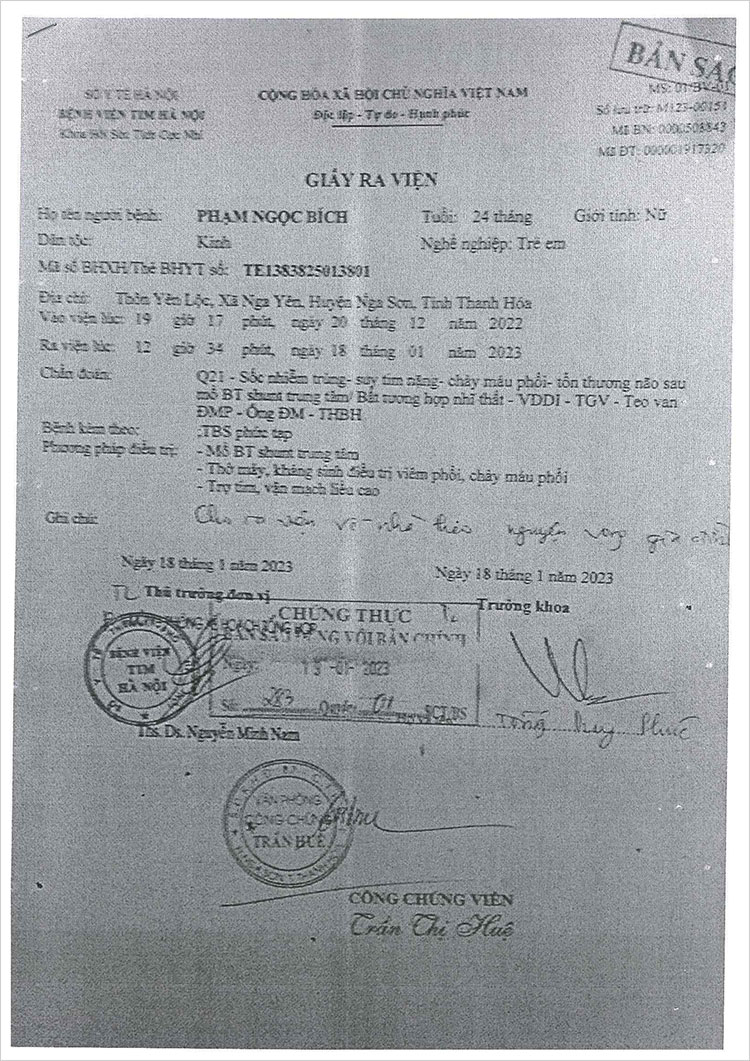 BẢN SAO
SỞ Y TẾ HÀ NỘI
BỆNH VIỆN TIM HÀ NỘI
Khoa Hồi Sức Tích Cực Nhi
CỘNG HÒA XÃ HỘI CHỦ NGHĨA VIỆT NAM
Độc lập - Tự do - Hạnh phúc
MS: 01-BV-01
Số lưu trữ: M123-00151
Mã BN: 0000508843
Mã ĐT: 000001917320
GIẤY RA VIỆN
Họ tên người bệnh: PHẠM NGỌC BÍCH Tuổi: 24 tháng Giới tính: Nữ
Dân tộc: Kinh Nghề nghiệp: Trẻ em
Mã số BHXH/Thẻ BHYT số: TE1383825013801
Địa chỉ: Thôn Yên Lộc, Xã Nga Yên, Huyện Nga Sơn, Tỉnh Thanh Hóa
Vào viện lúc: 19 giờ 17 phút, ngày 20 tháng 12 năm 2022
Ra viện lúc: 12 giờ 34 phút, ngày 18 tháng 01 năm 2023
Chẩn đoán: Q21 - Sốc nhiễm trùng- suy tim nặng- chảy máu phổi- tổn thương não sau
mổ BT shunt trung tâm/ Bất tương hợp nhĩ thất - VDDI - TGV - Teo van
ĐMP - Ống ĐM - THBH
Bệnh kèm theo: :TBS phức tạp
Phương pháp điều trị: - Mổ BT shunt trung tâm
- Thở máy, kháng sinh điều trị viêm phổi, chảy máu phổi
- Trợ tim, vận mạch liều cao
Ghi chú: Cho ra viện về nhà theo nguyện vọng gia đình
Ngày 18 tháng 1 năm 2023
Ngày 18 tháng 1 năm 2023
TL Thủ trưởng đơn vị
TL Trưởng khoa
CHỨNG THỰC
BẢN SAO ĐÚNG VỚI BẢN CHÍNH
Ngày: -01- 2023
Số: 283 Quyển: 01 SCT/BS
BỆNH VIỆN
TIM
HÀ NỘI
Ths. Ds. Nguyễn Minh Nam
Tống Duy Phúc
VĂN PHÒNG
CÔNG CHỨNG
TRẦN HUÊ
CÔNG CHỨNG VIÊN
Trần Thị Huê